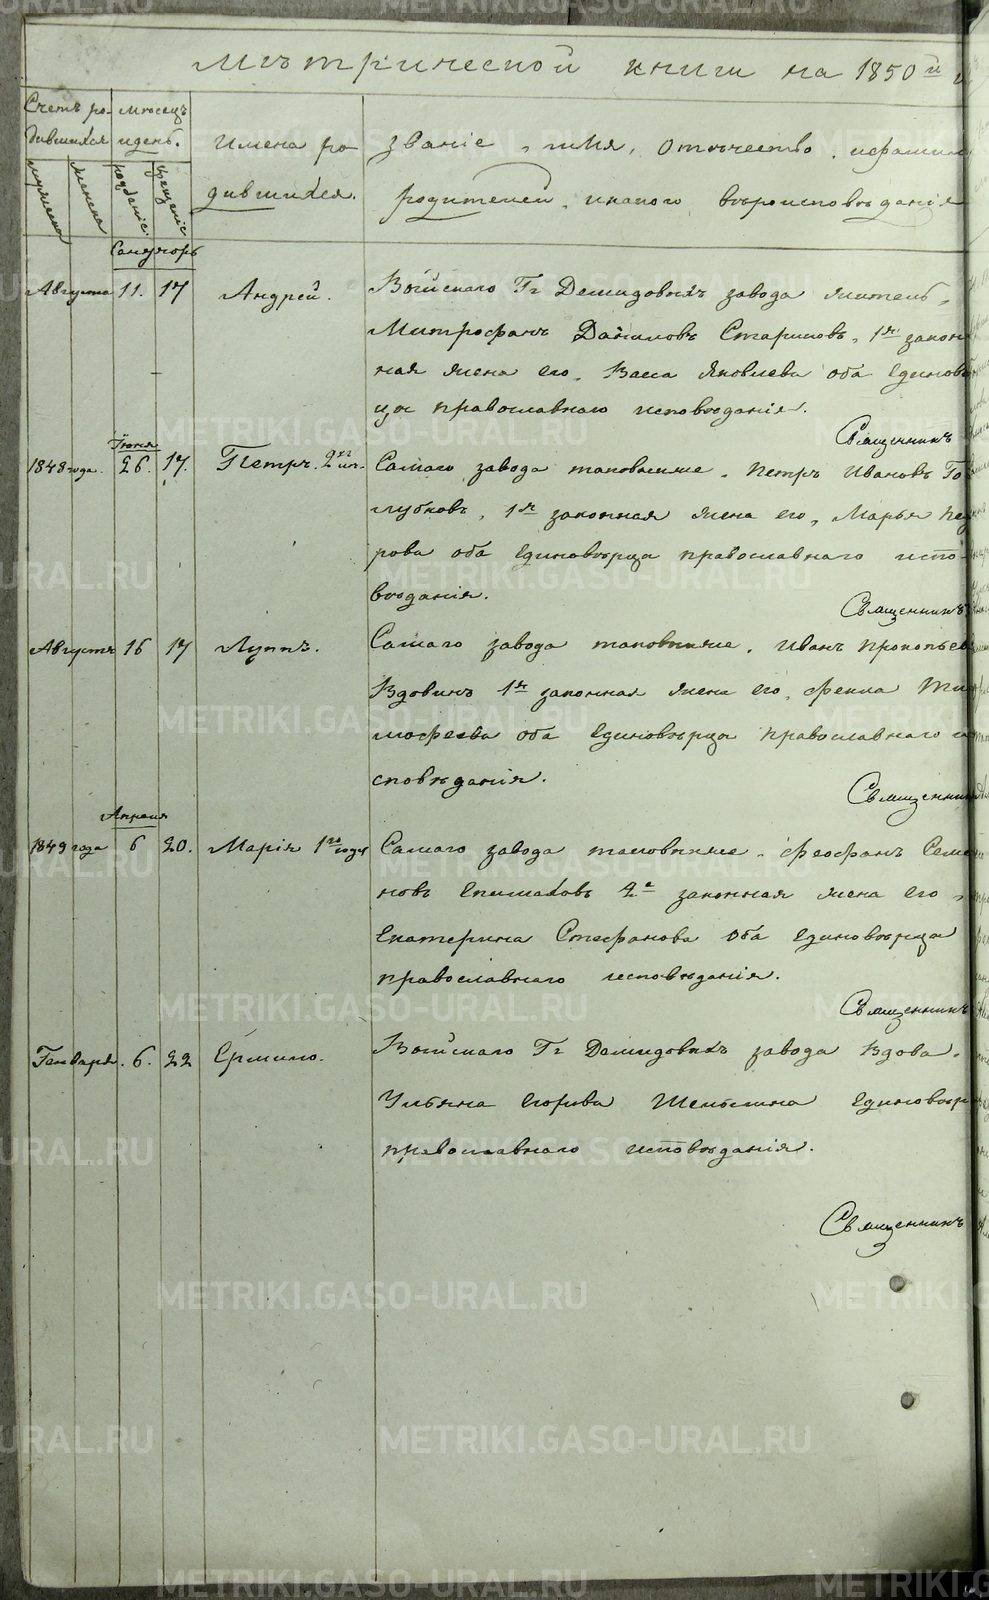 Метрической книги на 1850й
Счетъ ро- мѣсяцъ
дившихся и день. Имена ро Званіе, имя, отчество, и фамилі
дившихся. родителей, и какого вѣроисповѣданія
мужеска женска рожденіе крещеніе
Сентябрь
Августа 11. 17 Андрей. Войскаго Гг Демидовыхъ завода житель,
Митрофанъ Даниловъ Стариковъ, 1я закон
ная жена его, Васса Яковлева оба единовѣ
цы православнаго исповѣданія.
Священникъ
Іюня
1848 года. 26. 17. Петръ. 2хъ Самаго завода таковыеже, Петръ Ивановъ Го
лубковъ, 1я законная жена его, Марья Пет
рова оба единовѣрца православнаго испо-
вѣданія.
Священникъ
Августа 16 17 Луппъ. Самаго завода таковыеже, Иванъ Прокопьев
Вдовинъ 1я законная жена его, Фекла Ти
мофеева оба единовѣрца православнаго и
сповѣданія.
Священник
Апреля
1849 года 6 20. Марія 1го года Самаго завода таковыеже, Феофанъ Семе
новъ Епишаковъ 2я законная жена его,
Екатерина Стефанова оба единовѣрца
православнаго исповѣданія.
Священникъ
Генваря. 6. 22 Ермило. Войскаго Гг Демидовыхъ завода Вдова,
Ульяна Егорова Шемякина единовѣр
православнаго исповѣданія.
Священникъ
METRIKI.GASO-URAL.RU